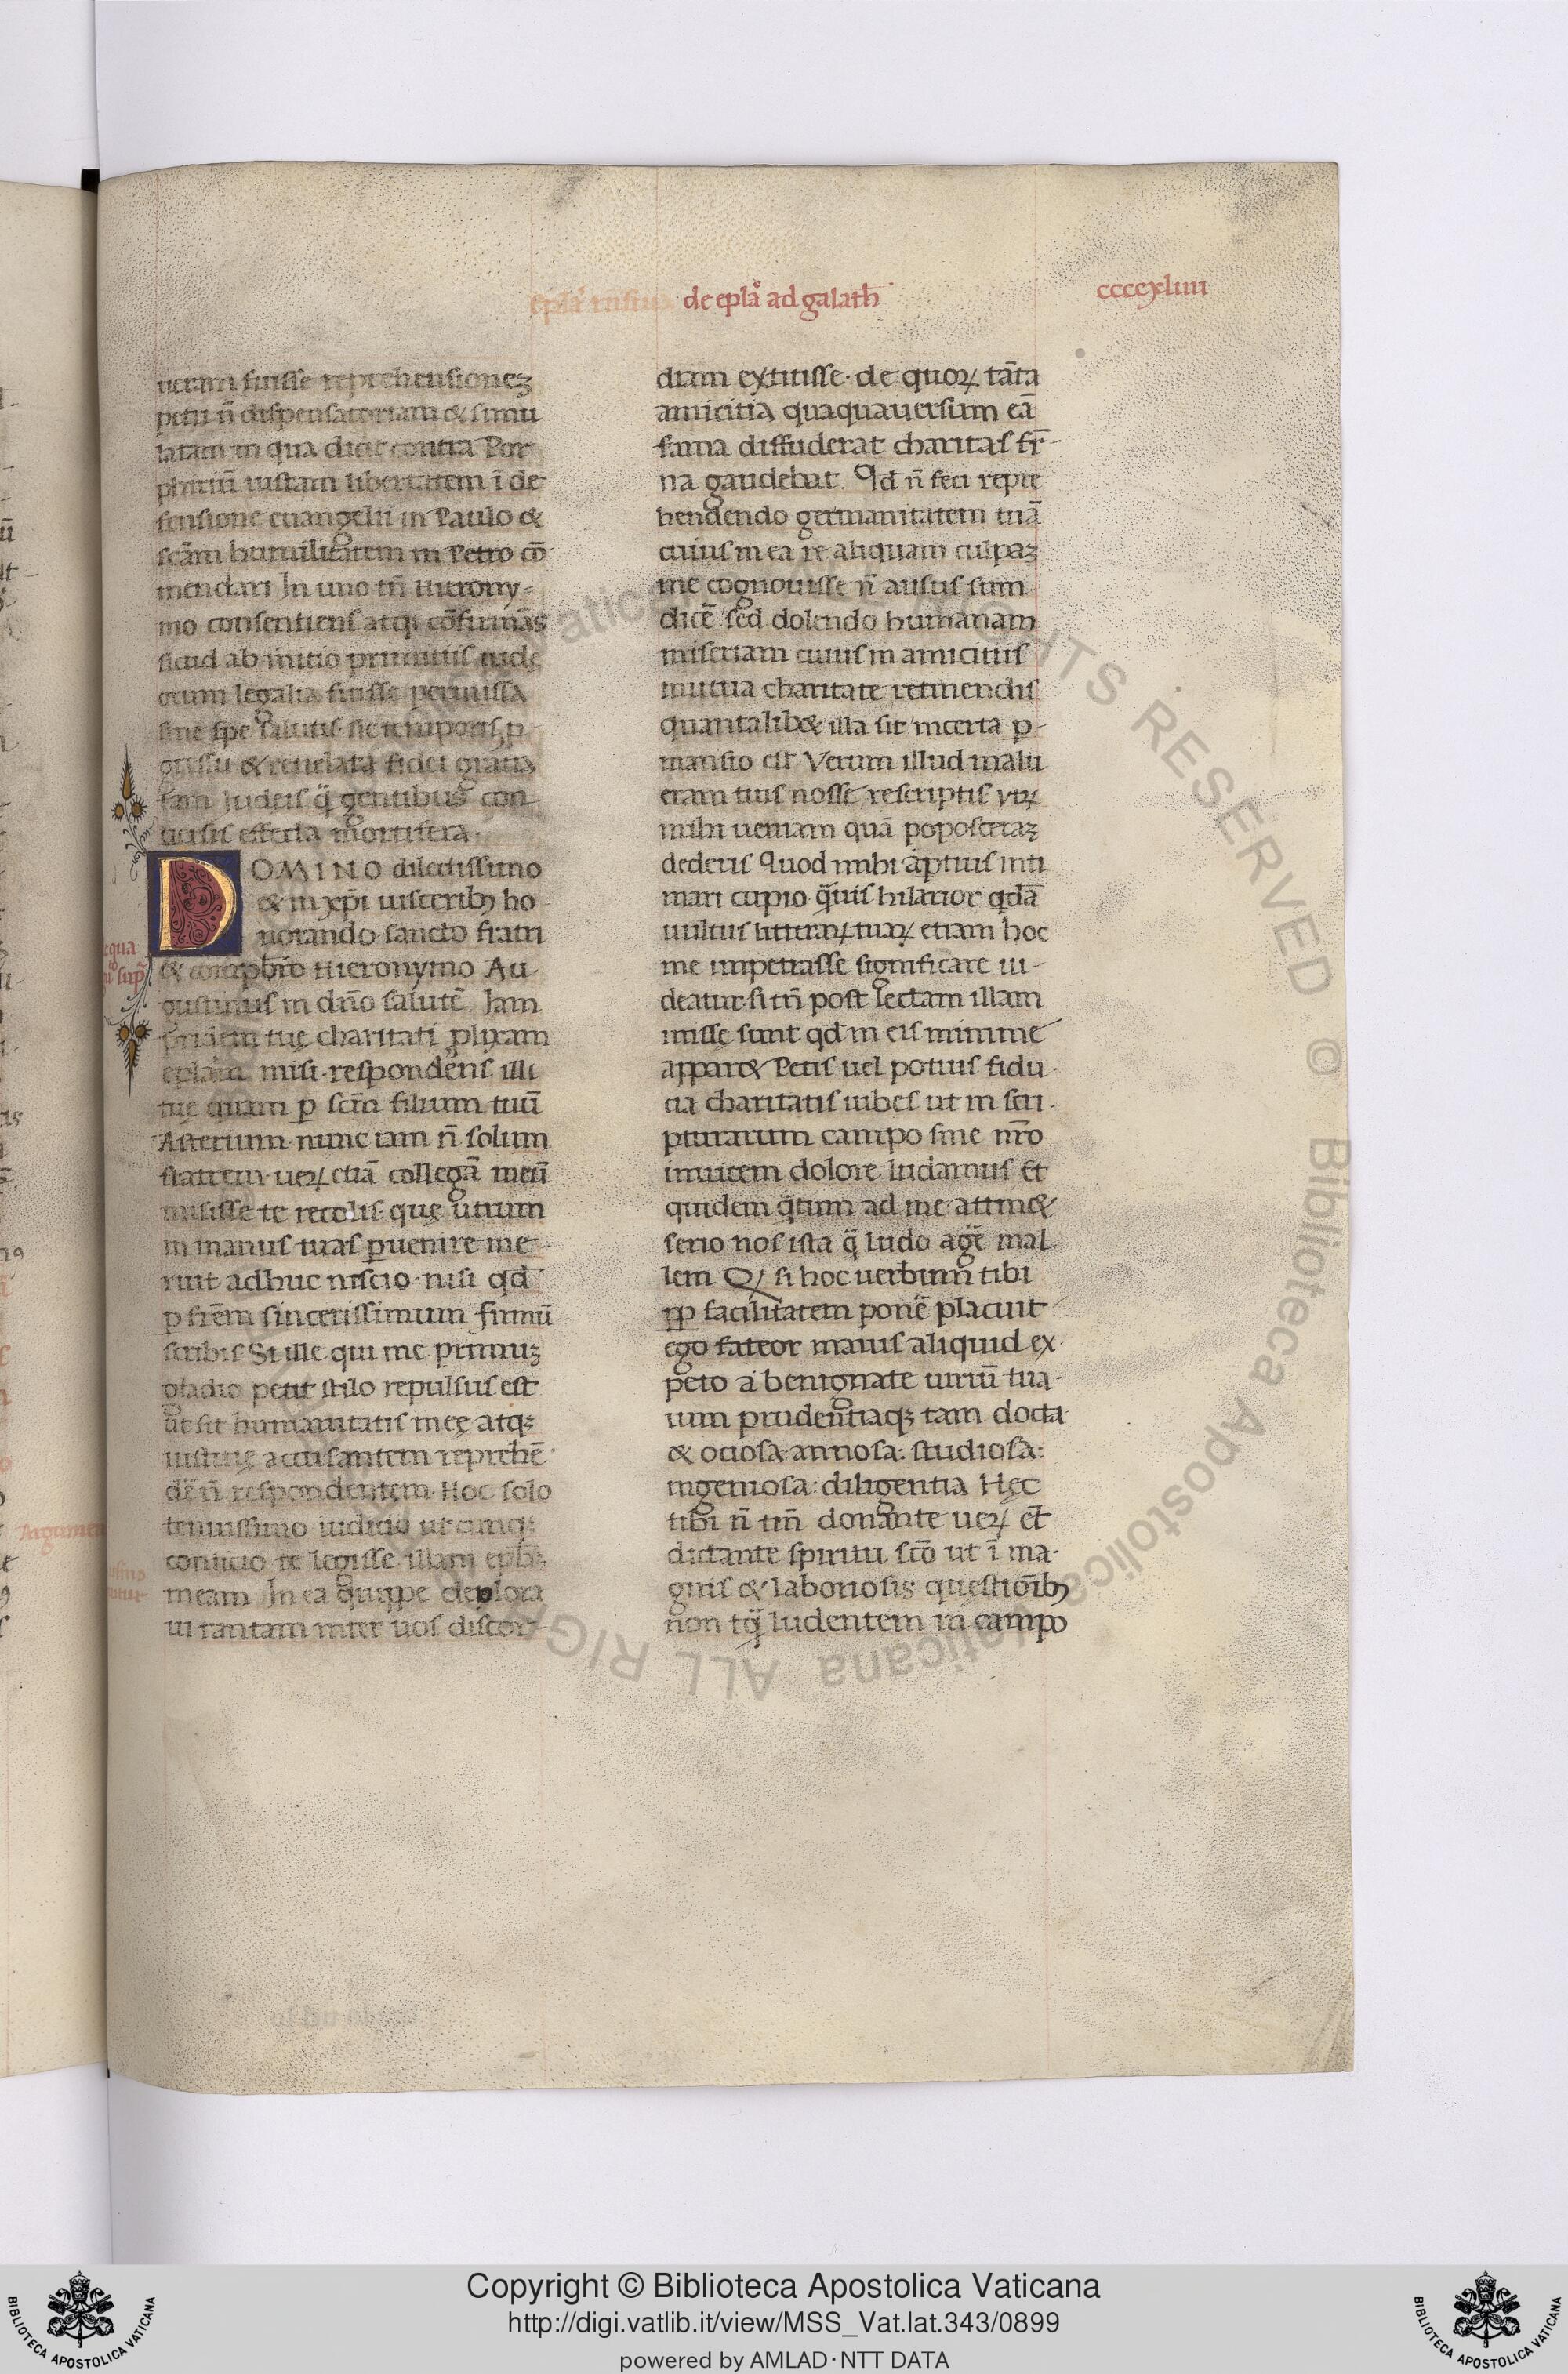 de ep̄la ad galath̄
ccccxliiii
ueram fuisse reprehensionez
petri n̄ dispensatoriam & simu
latam in qua dicit contra Por
phiriū iustam libertatem ī de
fensione euangelii in Paulo &
scām humilitatem in Petro cō
mendari In uno tn̄ Hierony-
mo consentiens atqꝫ cōfirmās
sicud ab initio primitiis iude
orum legalia fuisse permissa
sine spe salutis. sic temporis ꝓ
gressu & reuelata fidei gratia
tam Iudeis q̄ gentibus con
uersis effecta mortifera.
DOMINO dilectissimo
& in xp̄i uisceribꝫ ho
norando sancto fratri
& conpbr̄o Hieronymo Au
gustinus in dn̄o salutē Iam
pridem tuę charitati ꝓlixam
ep̄lam misi. respondens illi
tuę quam ꝑ scm̄ filium tuū
Asterium. nunc iam n̄ solum
fratrem. ueꝝ etiā collegā meū
misisse te recolis. quę utrum
in manus tuas ꝑuenire me
ruit adhuc nescio. nisi qd̄
ꝑ frēm sincerissimum firmū
scribis Si ille qui me primuz
gladio petiit stilo repulsus est
ut sit humanitatis meę atqꝫ
iustitię accusantem reprehē
dē n̄ respondentem. Hoc solo
tenuissimo iudicio utcunqꝫ
coniicio te legisse illam ep̄lam
meam In ea quippe deplora
ui tantam inter uos discor-
diam extitisse. de quoꝝ tāta
amicitia quaquauersum eā
fama diffuderat charitas fr̄-
na gaudebat. Qd̄ n̄ feci repre
hendendo germanitatem tuā
cuius in ea re aliquam culpaz
me cognouisse n̄ ausus sum
dicē sed dolendo humanam
miseriam cuius in amicitiis
mutua charitate retinendis
quantalib& illa sit incerta ꝑ-
mansio est Verum illud malu
eram tuis nosse rescriptis vtꝝ
mihi ueniam quā poposceraz
dederis Quod mihi aptius inti
mari cupio. q̄uis hilarior qdā
uultus litteraꝝ tuaꝝ etiam hoc
me impetrasse significare ui-
deatur. si tn̄ post lectam illam
missę sunt qd̄ in eis minime
appar& Petis uel potius fidu.
cia charitatis iubes ut in scri.
pturarum campo sine nr̄o
inuicem dolore ludamus Et
quidem q̄tum ad me attin&
serio nos ista q̄ ludo agē mal
lem Qꝫ si hoc uerbum tibi
ꝓp facilitatem ponē placuit
ego fateor maius aliquid ex.
peto a benignate uiriū tua.
ium prudentiaqꝫ tam docta
& ociosa: annosa: studiosa:
ingeniosa: diligentia Hęc
tibi n̄ tm̄ donante ueꝝ et̄
dictante spiritu scō ut ī ma.
gnis & laboriosis questiōibꝫ
non tq̄ ludentem in campo
Copyright © Biblioteca Apostolica Vaticana
http://digi.vatlib.it/view/MSS_Vat.lat.343/0899
powered by AMLAD·NTT DATA